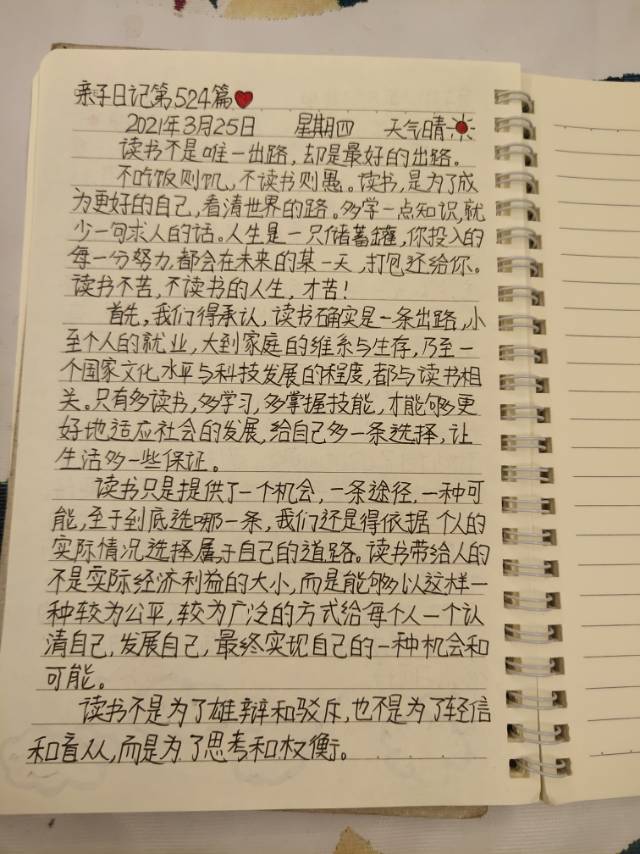 亲子日记第524篇
2021年3月25日 星期四 天气晴
读书不是唯一出路,却是最好的出路.
不吃饭则饥,不读书则愚。读书,是为了成
为更好的自己,看清世界的路。多学一点知识,就
少一句求人的话。人生是一只储蓄罐,你投入的
每一分努力,都会在未来的某一天,打包还给你。
读书不苦,不读书的人生,才苦!
首先,我们得承认,读书确实是一条出路,小
至个人的就业,大到家庭的维系与生存,乃至一
个国家文化水平与科技发展的程度,都与读书相
关。只有多读书,多学习,多掌握技能,才能够更
好地适应社会的发展,给自己多一条选择,让
生活多一些保证。
读书只是提供了一个机会,一条途径,一种可
能,至于到底选哪一条,我们还是得依据个人的
实际情况选择属于自己的道路。读书带给人的
不是实际经济利益的大小,而是能够以这样一
种较为公平,较为广泛的方式给每个人一个认
清自己,发展自己,最终实现自己的一种机会和
可能。
读书不是为了雄辩和驳斥,也不是为了轻信
和盲从,而是为了思考和权衡。